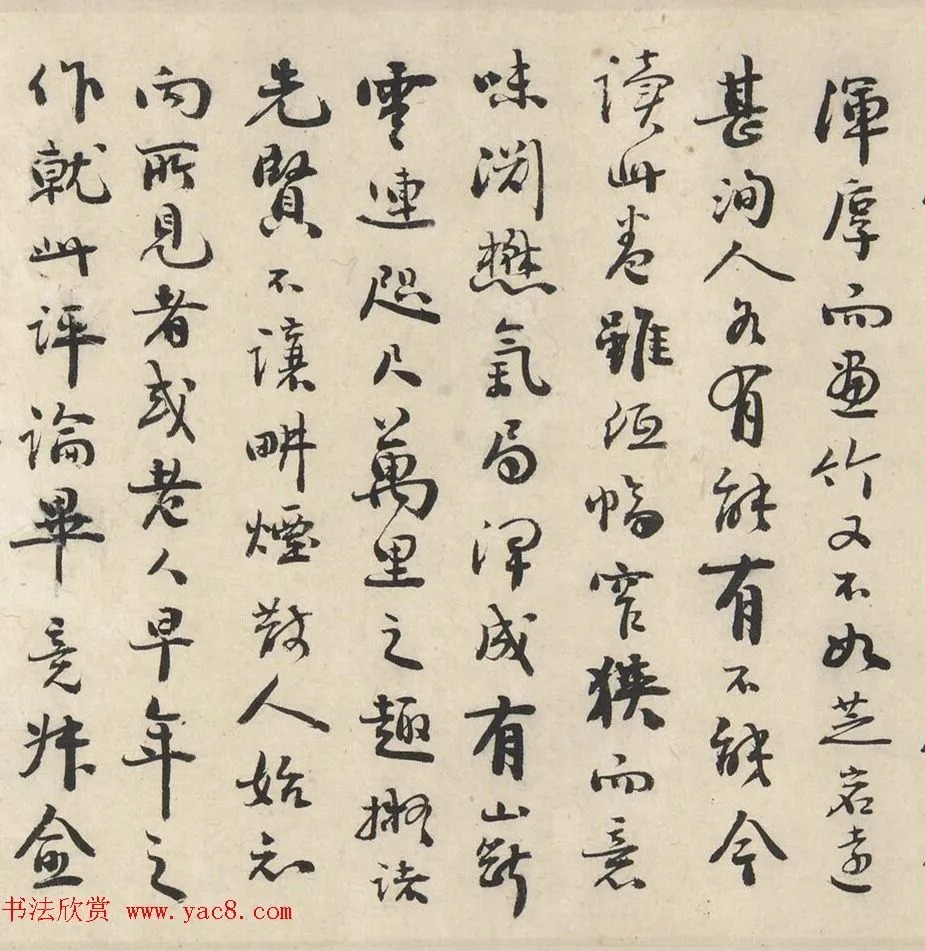 渾厚而画竹又不如芝岩遠
甚洵人各有能有不能今
讀此卷雖紙幅窄狹而意
味淵懋氣局渾成有山斷
雲連咫尺萬里之趣擬諸
先賢不讓畊煙散人始知
向所見者或老人早年之
作就此評論畢竟
书法欣赏 www.yac8.com